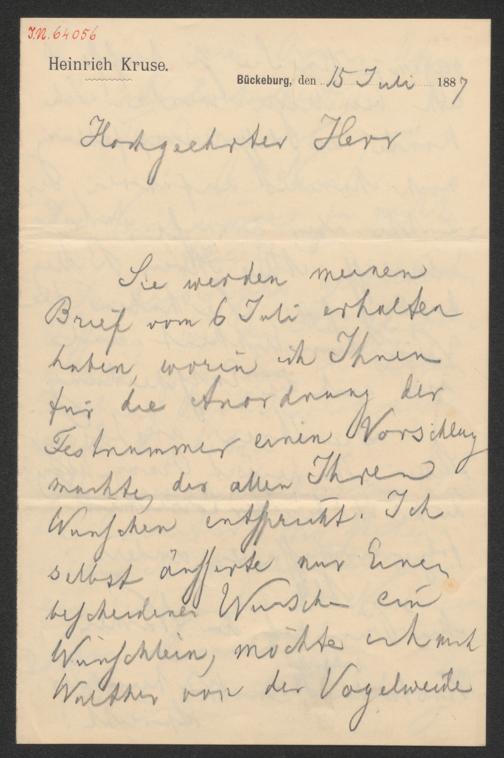 I.N. 64056
Heinrich Kruse.
Bückeburg, den 15 Juli 1887
Hochgeehrter Herr
Sie werden meinen
Brief vom 6 Juli erhalten
haben, worin ich Ihnen
für die Anordnung der
Festnummer einen Vorschlag
machte, der allen Ihren
Wünschen entspricht. Ich
selbst äußerte nur Einen
bescheidenen Wunsch ein
Wünschlein, möchte ich mit
Walther von der Vogelweide